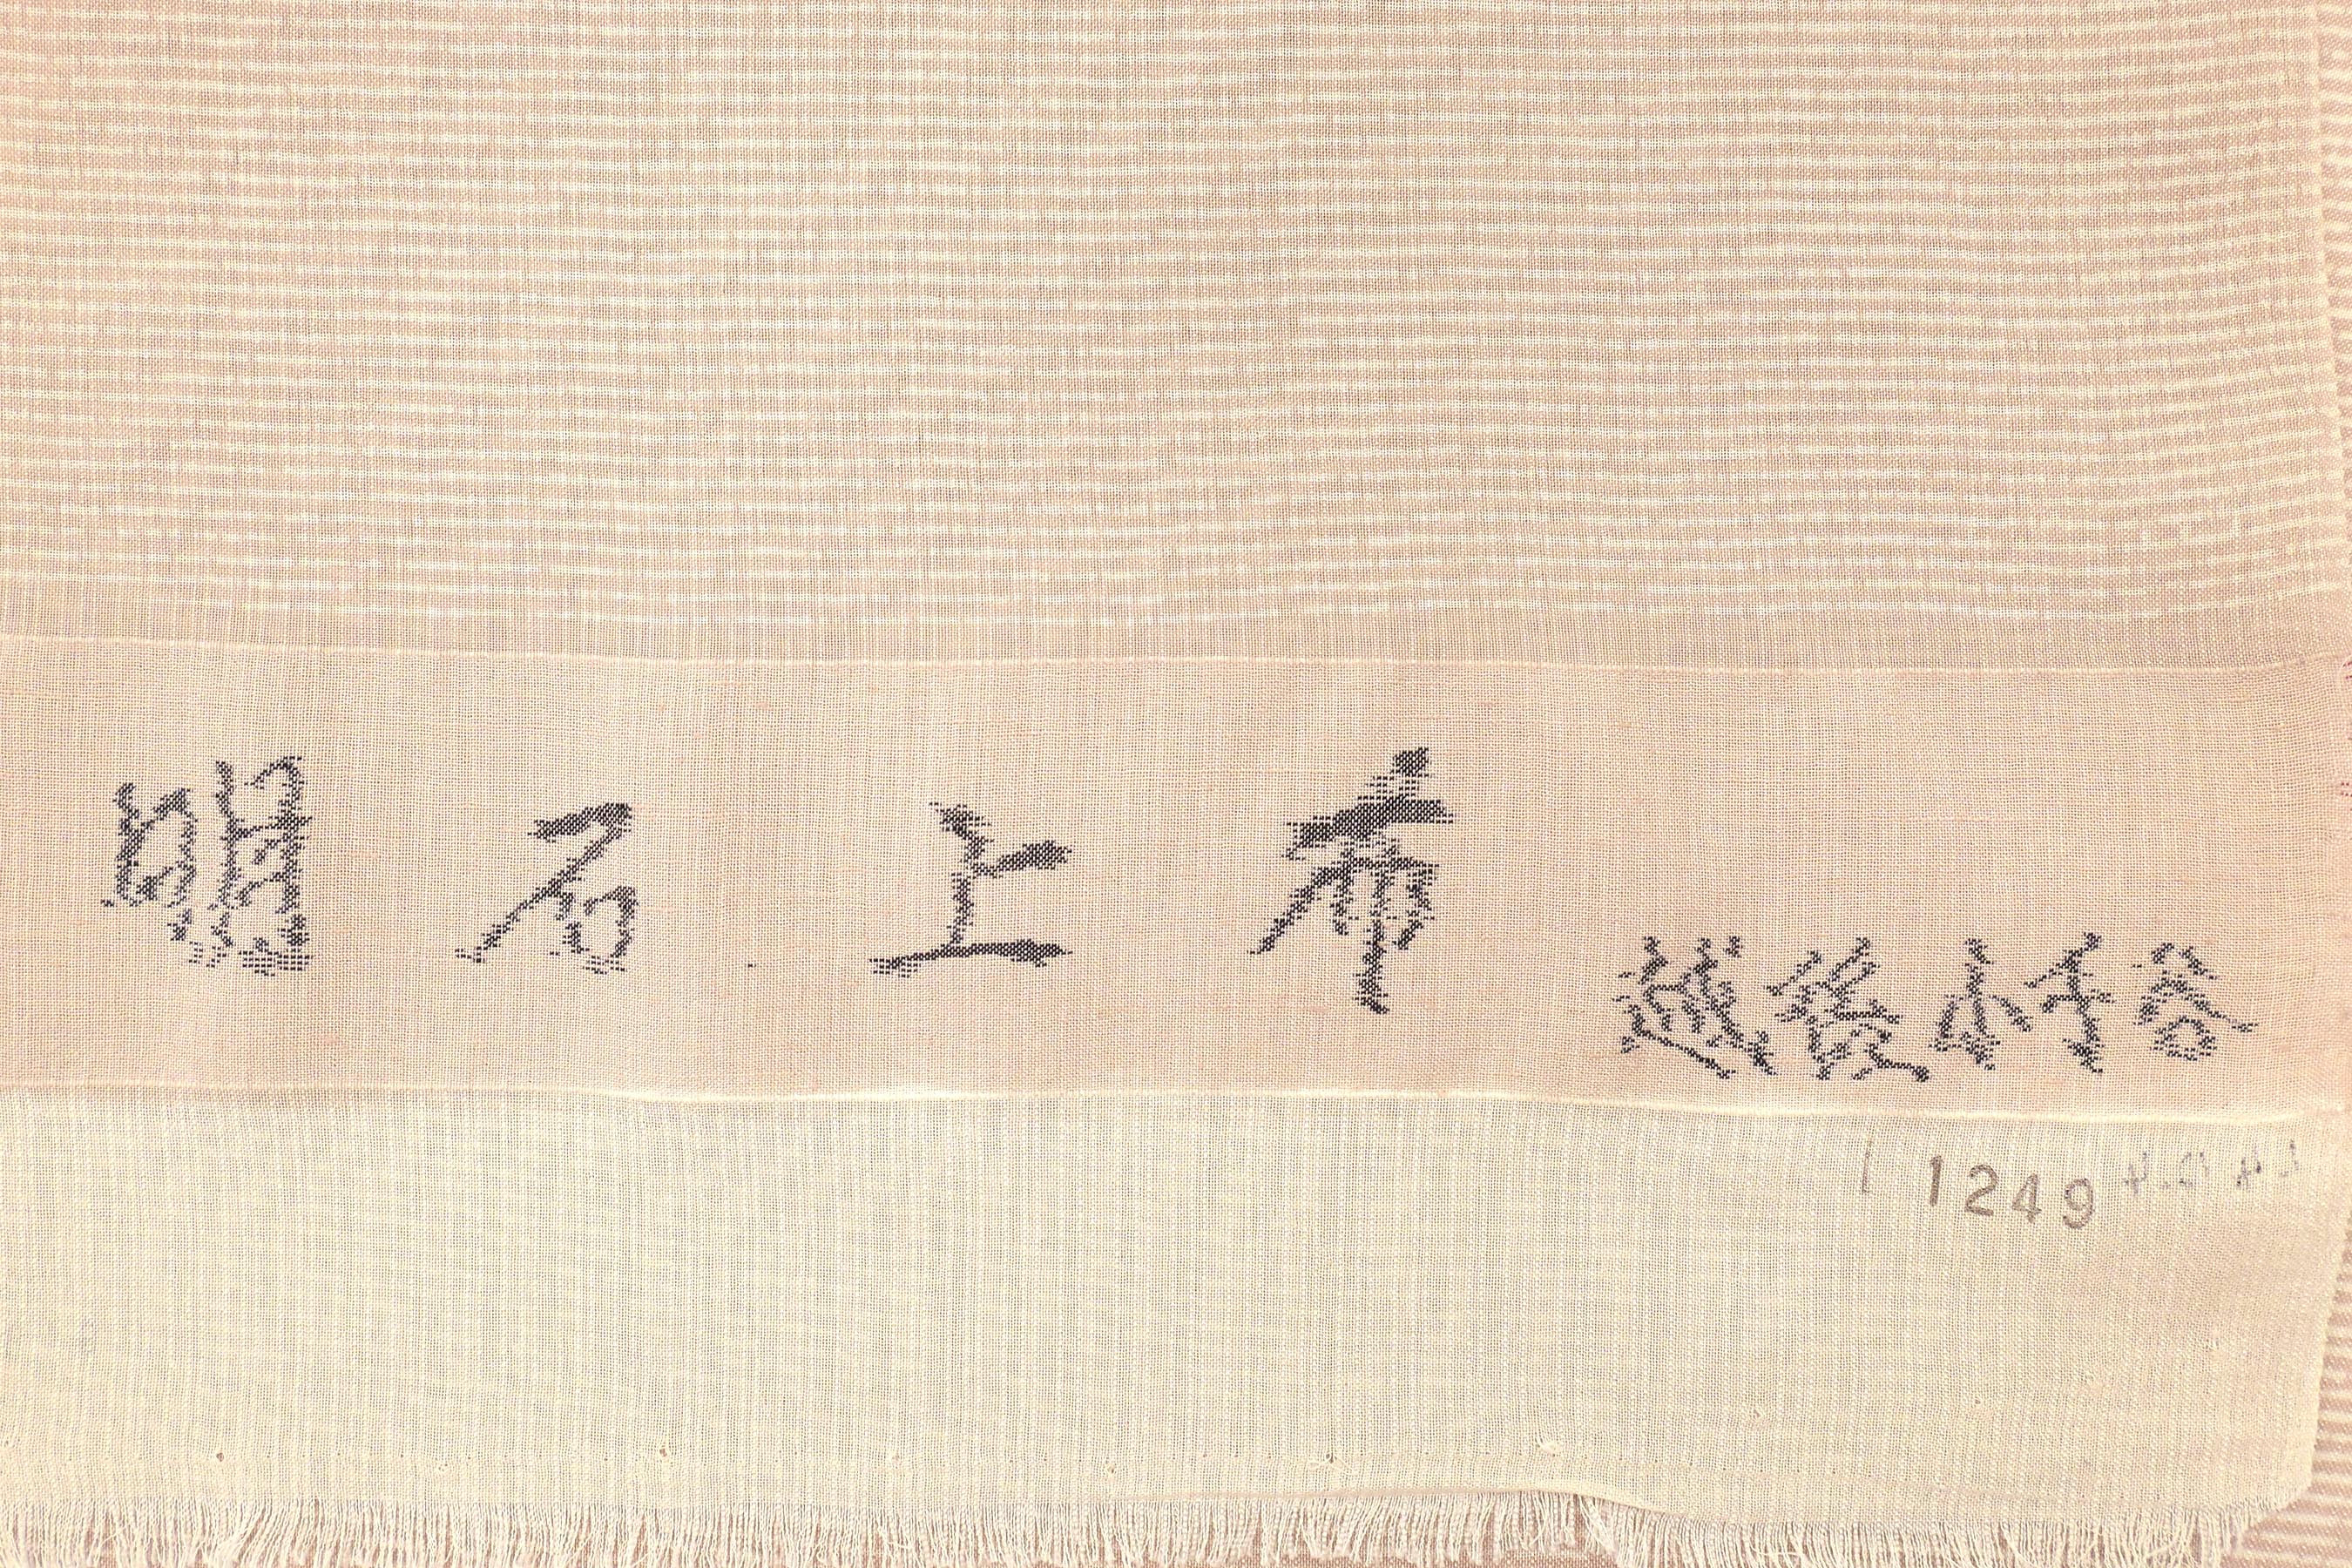 明石上布
越後小千谷
1249